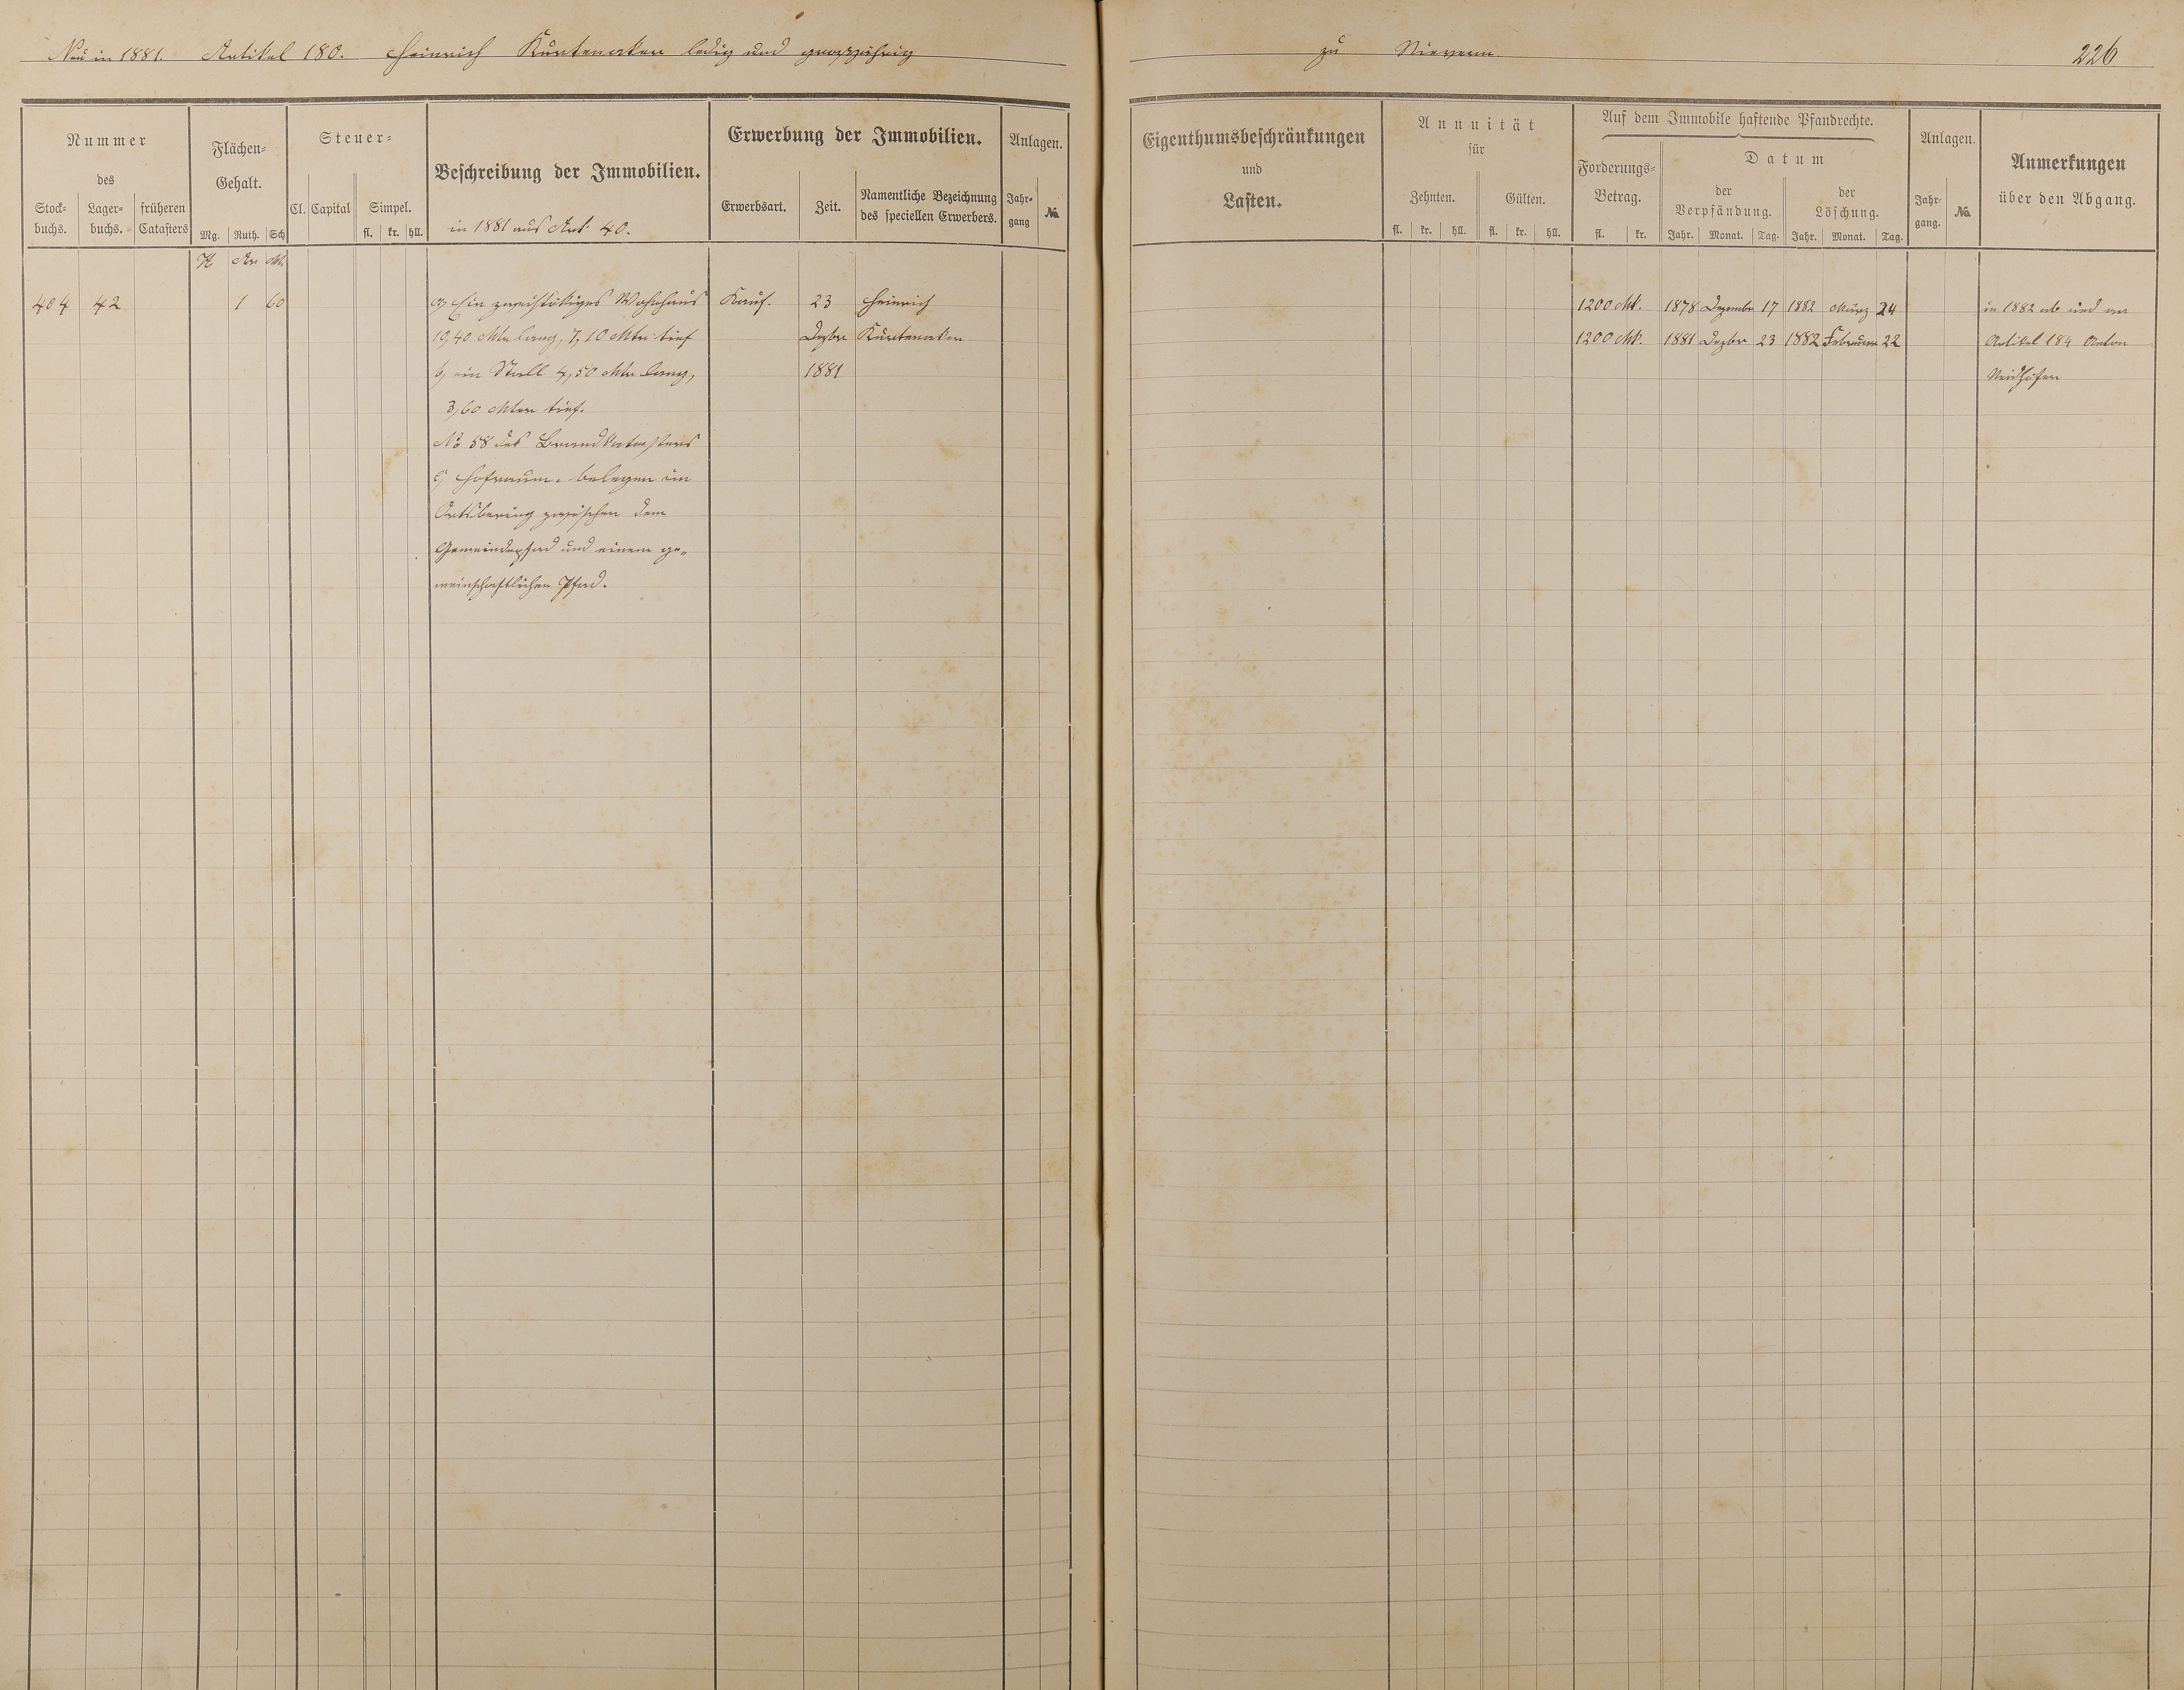 Neu in 1881. Artikel 180. Heinrich Kurtenacker ledig und großjährig
zu Nievern
226
Nummer
des
Stock-
buchs.
Lager-
buchs.
früheren
Catasters
Flächen-
Gehalt.
Mg. Ruth. Sch
Steuer-
Cl. Capital Simpel.
fl. kr. hll.
Beschreibung der Immobilien.
in 1881 aus Art. 40.
Erwerbung der Immobilien.
Erwerbsart. Zeit.
Namentliche Bezeichnung
des speciellen Erwerbers.
Anlagen.
Jahr-
gang
No.
Eigenthumsbeschränkungen
und
Lasten.
Annuität
für
Zehnten. Gülten.
fl. kr. hll. fl. kr. hll.
Auf dem Immobile haftende Pfandrechte.
Forderungs-
Betrag.
fl. kr.
Datum
der
Verpfändung.
der
Löschung.
Jahr. Monat. Tag. Jahr. Monat. Tag.
Anlagen.
Jahr-
gang.
No.
Anmerkungen
über den Abgang.
H Ar Mtr
404 42 1 60 a, Ein zweistöckiges Wohnhaus Kauf. 23 Heinrich 1200 Mk. 1878 Dezember 17 1882 März 24 in 1882 ab und an
10,40 Mtr lang, 7,10 Mtr tief Dezber Kurtenacker 1200 Mk. 1881 Dezber 23 1882 Februar 22 Artikel 184 Anton
b, ein Stall 4,50 Mtr lang, 1881 Neidhöfer
3,60 Mtr tief.
No 58 des Brandkatasters
c, Hofraum. belegen im
Ortsbering zwischen dem
Gemeindepfad und einem ge-
meinschaftlichen Pfad.